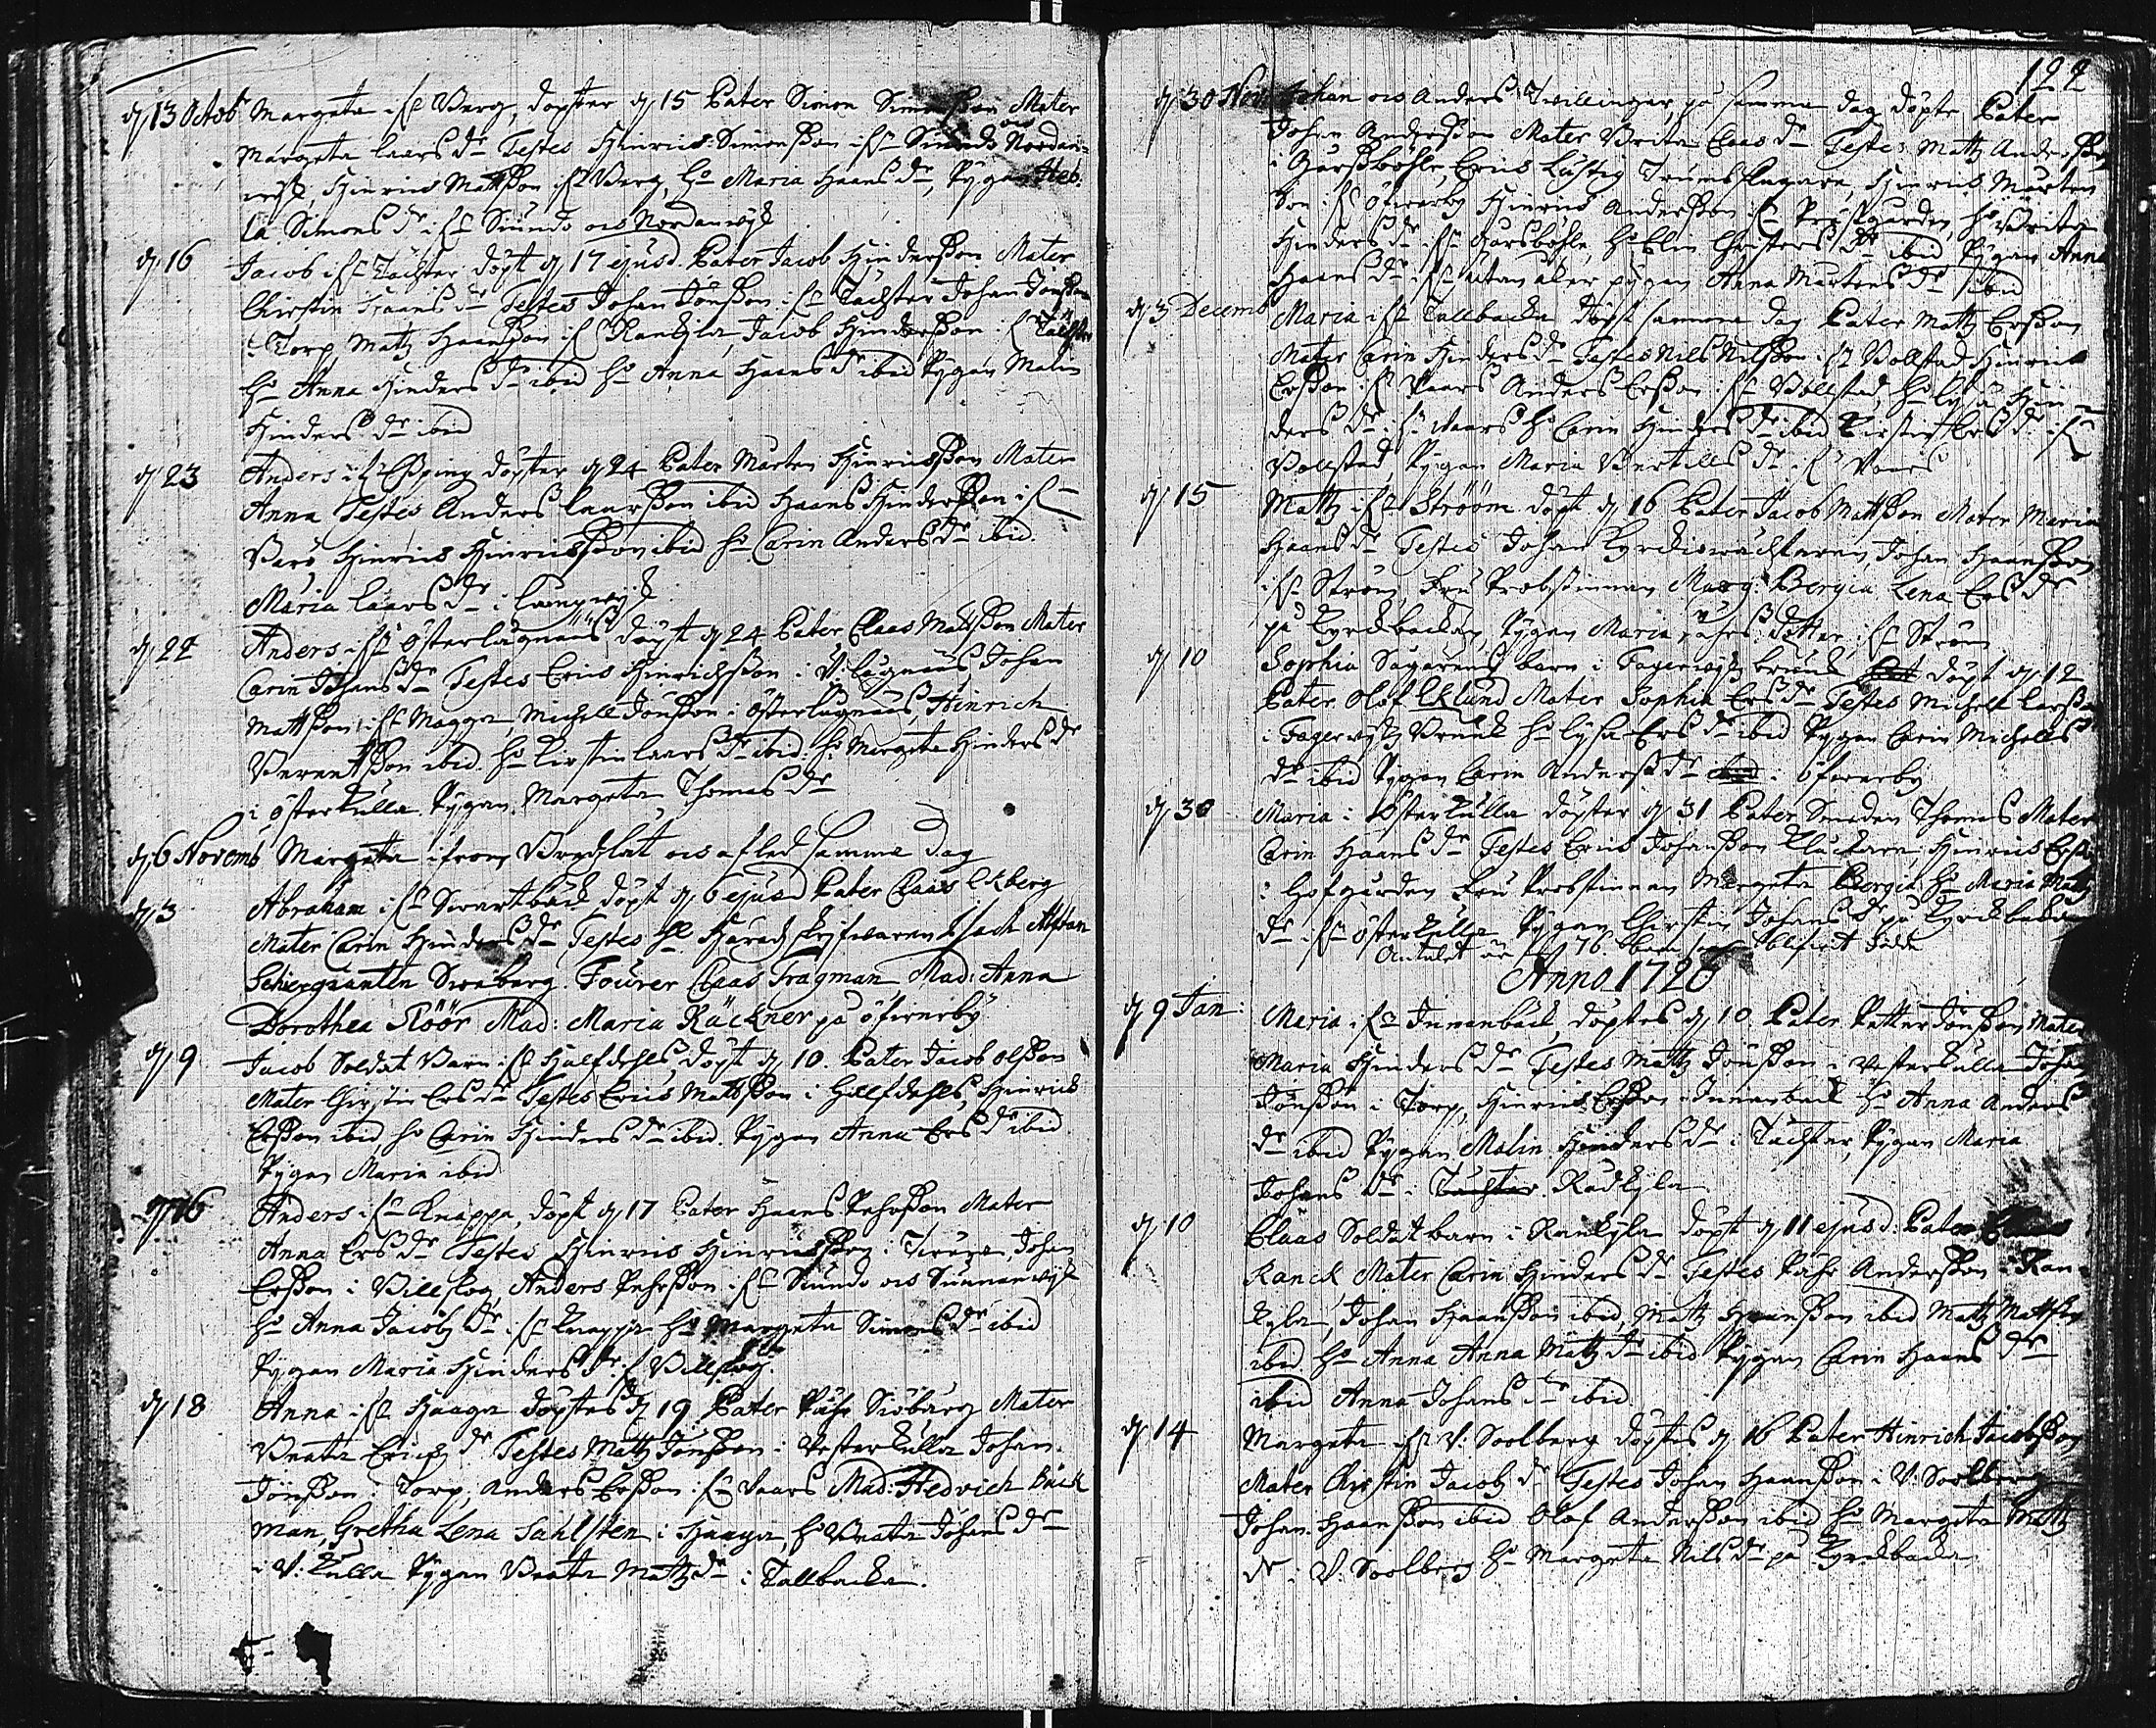 d. 13 Octob Margeta i fr Berg, döpter d. 15 Pater Simon Simonsson Mater
Margeta Laars dr Testes Hinrics Simonsson i fr Siundo Nordan-
wik, Hinrics Mattsson fr Berg, ho Maria Haans dr, Pygan Heb-
la Simons dr i fr Siundo ocs Nordanwijk
d. 16 Jacob i fr Täckter döpt d. 17 ejusd. Pater Jacob Hindersson Mater
Chirstin Haans dr Testes Johan Jönsson i fr Täckter Johan Jönsson
i Torp, Matz Haansson i fr Rankyla, Jacob Hindersson i fr Täckter
ho Anna Hinders dr ibid ho Anna Haans dr ibid Pygan Malin
Hinders dr ibid
d. 23 Anders i fr Elfping döpter d. 24 Pater Mårten Hinricsson Mater
Anna Testes Anders Laarsson ibid Haans Hindersson i fr
Barö, Hinrics Hinricsson ibid ho Carin Anders dr ibid.
Maria Laars dr i Långwijk
d. 22 Anders i fr Österlugnääs döpt d. 24 Pater Claas Mattsson Mater
Carin Johans dr Testes Erics Hinrichsson i V: Lugnääs, Johan
Mattsson i fr Magga, Michell Jönsson i Österlugnääs, Hinrich
Berentsson ibid ho Kirstin Laars dr ibid. ho Margeta Hinders dr
i Österkulla Pygan Margeta Thomas dr
d. 6 Novemb Margeta ifrån ocs afled samma dag
d. 3 Abraham i fr Swartbäck döpt d. 6 ejusd Pater Claas Ekberg
Mater Carin Hinders dr Testes Hl Häradzskrifwaren Isach Alftan
Schergianten Sweberg. Fourer Claas Fragman Mad: Anna
Dorothea Röör Mad: Maria Räckner på Öfwerby
d. 9 Jacob Soldat Barn i fr Halfdehls, döpt d. 10. Pater Jacob Olsson
Mater Chirstin Ers dr Testes Erics Mattsson i Halfdehls, Hinrich
Ersson ibid ho Carin Hinders dr ibid. Pygan Anna Ers dr ibid
Pygan Maria ibid
d. 16 Anders i fr Knappa, döpt d. 17 Pater Haans Pehrsson Mater
Anna Ers dr Testes Hinrics Hinricsson i Johan
Ersson i Billskog, Anders Pehrsson i fr Siundo ocs Sunnanwijk
ho Anna Jacobs dr i fr Knappa ho Margeta Simons dr ibid
Pygan Maria Hinders dr i fr Billskog
d. 18 Anna i fr Haaga döptes d. 19 Pater Pähr Siöberg Mater
Beata Erichs dr Testes Matz Jönsson i Vesterkulla Johan
Jönsson i Torp, Anders Ersson i fr Vaars Mad: Hedvich Bäck
man, Gretha Lena Sahlsten i Haaga, ho Beata Johans dr
i V: Kulla Pygan Beata Matz dr i Tallbacka.
122
d. 30 Nov Johan ocs Anders Twillingar, på samma dag döpte Pater
Johan Andersson Mater Brita Claas dr Testes Matz Andersson
i Garsböhle, Erics Lustig Trumslagare, Hinrics Mårten
son i fr Öfwerby Hinrics Andersson i fr Prästgården, ho Brita
Hinders dr i fr Garsböhle, ho Elin Christers dr ibid Pygan Anna
Haans dr i fr Utanåker pygan Anna Mårtens dr ibid
d. 3 Decemb Maria i fr Tallbacka döpt samma dag Pater Matz Ersson
Mater Carin Hinders dr Testes Nils Nilsson i fr Bollstad, Hinrich
Ersson i fr Vaars Anders Ersson i fr Bollstad, ho Lysa Hin-
ders dr i fr Vaars ho Carin Hinders dr ibid Kirstin Ers dr i fr
Bollstad, Pygan Maria Bertills dr i fr Vaars
d. 15 Matz i fr Strööm döpt d. 16 Pater Jacob Mattsson Mater Maria
Haans dr Testes Johan Kyrckiowächtaren, Johan Haansson
i fr Ström, Fru Probstinnan Marg: Bergia Lena Ers dr
på Kyrckbacken, Pygan Maria Lahrs Dotter i fr Ström
d. 10 Sophia Sågarens barn i Fagerwijks bruuk döpt d. 12
Pater Olof Eklund Mater Sophia Ers dr Testes Michell Larsson
i Fagerwijks Bruuk ho Lysa Ers dr ibid Pygan Carin Michells
dr ibid Pygan Carin Anders dr i Öfwerby
d. 30 Maria i Österkulla döpter d. 31 Pater Smeden Thomas Mater
Carin Haans dr Testes Erics Johansson Kluckare, Hinrics Ersson
i Hofgården Fru Probstinnan Margeta Bergia ho Maria Matz
dr i fr Österkulla Pygan Chirstin Johans dr på Kyrckbacken
Antalet är 76. Barn
Anno 1720
d. 9 Jan: Maria i fr Innanbäck, döptes d. 10 Pater Petter Jönsson Mater
Maria Hinders dr Testes Mattz Jönsson i Vesterkulla Johan
Jönsson i Torp, Hinrics Ersson Innanbäck ho Anna Anders
dr ibid Pygan Malin Hinders dr i Täckter, Pygan Maria
Johans dr i Täckter Rådkyla
d. 10 Claas Soldat barn i Rankyla döpt d. 11 ejusd: Pater Claas
Ranck Mater Carin Hinders dr Testes Pähr Andersson i Ran-
kyla, Johan Haansson ibid, Matz Haansson ibid Matz Mattsson
ibid ho Anna Anna Matz dr ibid Pygan Carin Haans dr
ibid Anna Johans dr ibid
d. 14 Margeta i fr V: Soolberg döptes d. 16 Pater Hinrich Jacobsson
Mater Chirstin Jacobs dr Testes Johan Haansson i V: Soolberg
Johan Haansson ibid Olof Andersson ibid ho Margeta Matz
dr i V: Soolberg ho Margeta Nils dr på Kyrckbacka